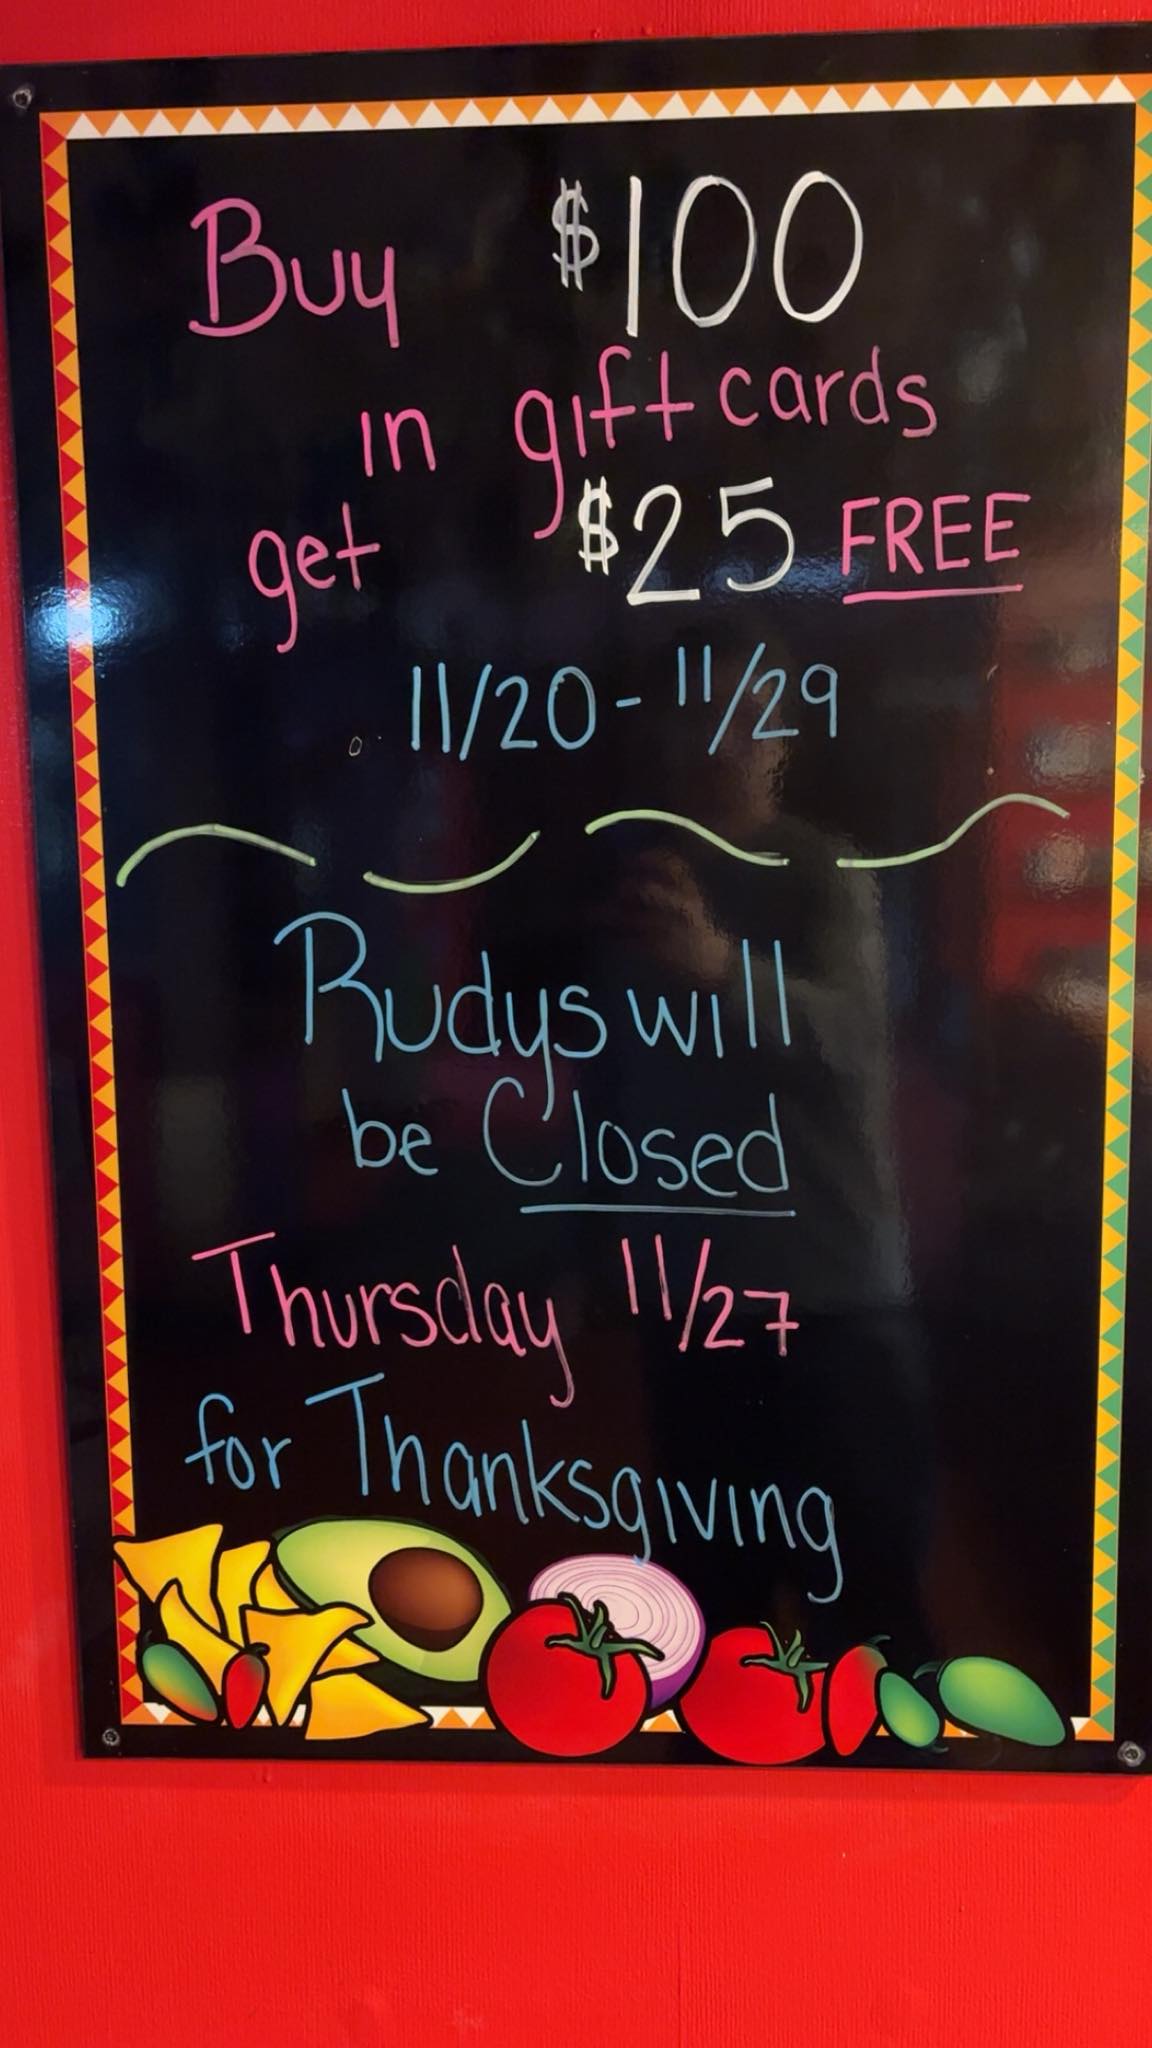 Buy $100
in gift cards
get $25 FREE
11/20 - 11/29
Rudys will
be Closed
Thursday 11/27
for Thanksgiving